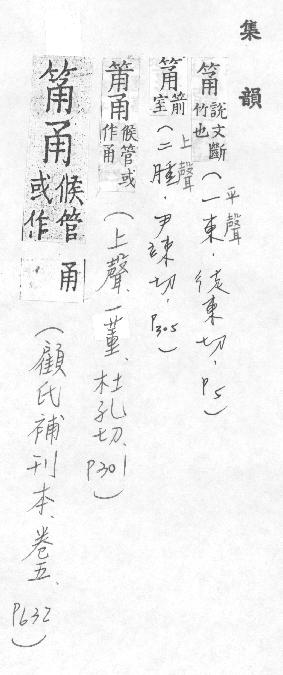 集韻
筩說文斷竹也(平聲一東.徒東切,P5)
筩箭室(上聲二腫.尹竦切,P305)
筩甬候管或作甬(上聲、一董、杜孔切、P301)
筩甬候管或作甬(顧氏補刊本、卷五、P632)